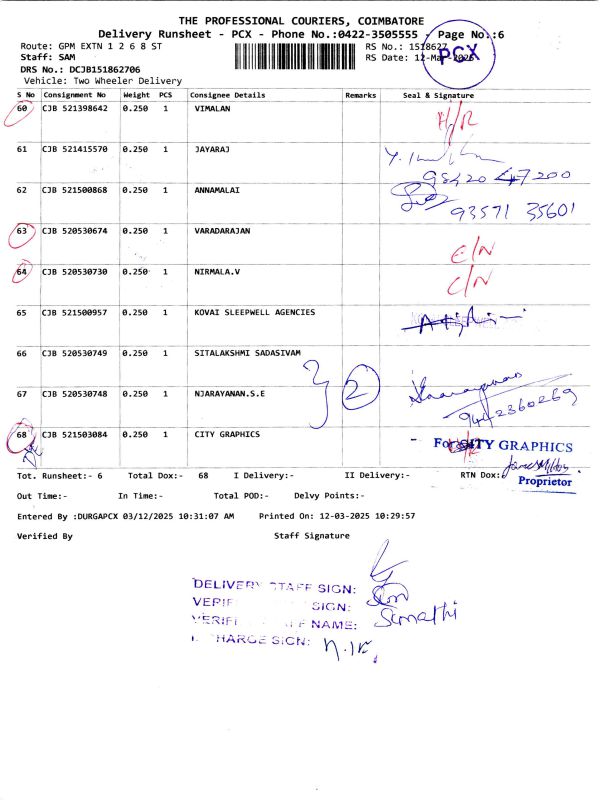 THE PROFESSIONAL COURIERS, COIMBATORE
Delivery Runsheet - PCX - Phone No.:0422-3505555 - Page No.:6
Route: GPM EXTN 1 2 6 8 ST
RS No.: 1518627
PCX
Staff: SAM
RS Date: 12-Mar-2025
DRS No.: DCJB151862706
Vehicle: Two Wheeler Delivery
S No Consignment No Weight PCS Consignee Details Remarks Seal & Signature
60 CJB 521398642 0.250 1 VIMALAN H/R
61 CJB 521415570 0.250 1 JAYARAJ
98420 47200
62 CJB 521500868 0.250 1 ANNAMALAI
93571 35601
63 CJB 520530674 0.250 1 VARADARAJAN E/N
64 CJB 520530730 0.250 1 NIRMALA.V C/N
65 CJB 521500957 0.250 1 KOVAI SLEEPWELL AGENCIES
66 CJB 520530749 0.250 1 SITALAKSHMI SADASIVAM
2
67 CJB 520530748 0.250 1 NJARAYANAN.S.E
9442360269
68 CJB 521503084 0.250 1 CITY GRAPHICS
For CITY GRAPHICS
Tot. Runsheet:- 6 Total Dox:- 68 I Delivery:- II Delivery:- RTN Dox:-
Proprietor
Out Time:- In Time:- Total POD:- Delvy Points:-
Entered By :DURGAPCX 03/12/2025 10:31:07 AM Printed On: 12-03-2025 10:29:57
Verified By Staff Signature
DELIVERY STAFF SIGN:
SIGN:
NAME: Sumathi
CHARGE SIGN: N.IR.